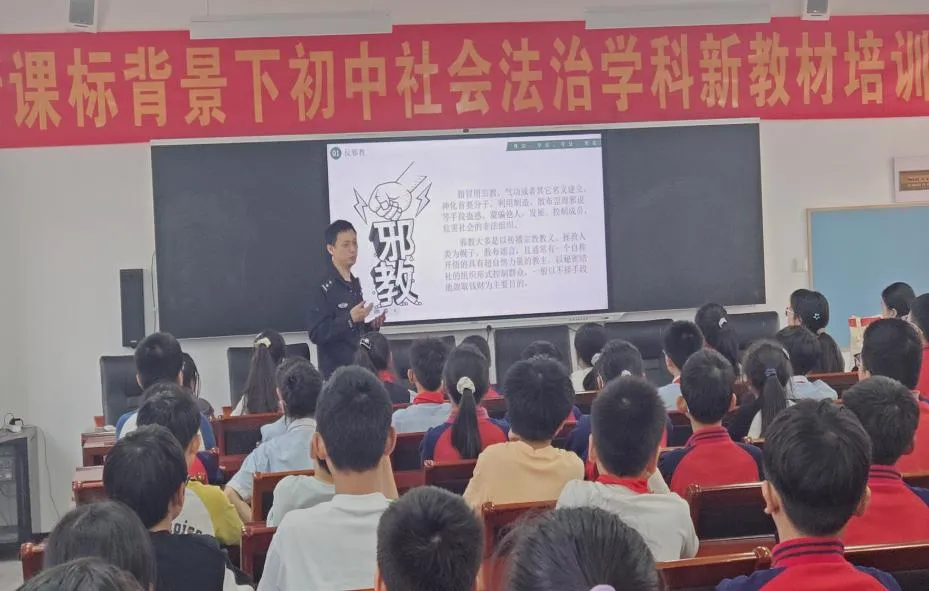 课标背景下初中社会法治学科新教材培训
01 反邪教
邪教
指冒用宗教、气功或者其它名义建立，
神化首要分子，利用制造、散布歪理邪说
等手段蛊惑、蒙骗他人，发展、控制成员，
危害社会的非法组织。
邪教大多是以传播宗教教义、拯救人
类为幌子，散布谣言，且通常有一个自称
开悟的具有超自然力量的教主，以秘密结
社的组织形式控制群众，一般以不择手段
地敛取钱财为主要目的。